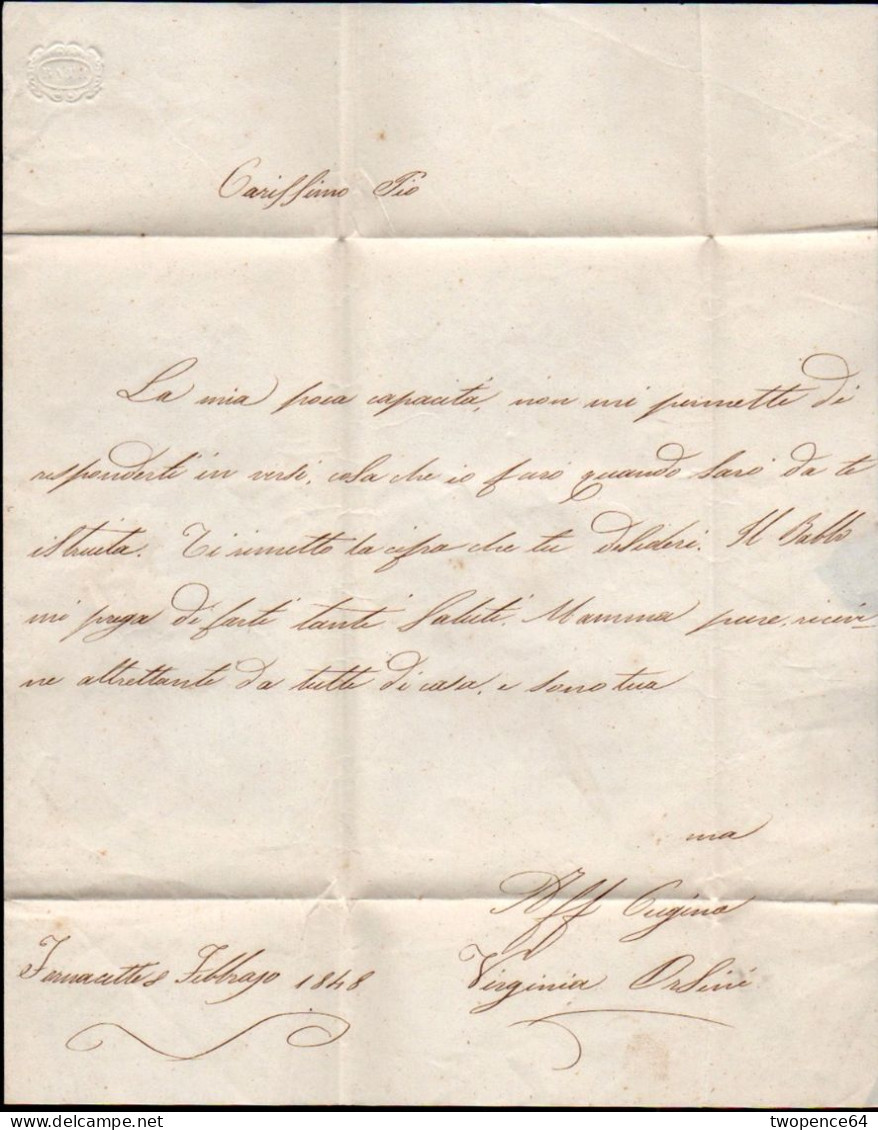 BATH
Carissimo Pio
La mia poca capacità, non mi permette di
risponderti in versi, cosa che io farò quando sarò da te
istruita. Ti rimetto la cifra che tu desideri. Il Babbo
mi prega di farti tanti saluti, Mamma pure, ricevi-
ne altrettanti da tutti di casa, e sono tua
Aff.ma Cugina
Fornacette 8 Febbrajo 1848
Virginia Orsini
twopence64